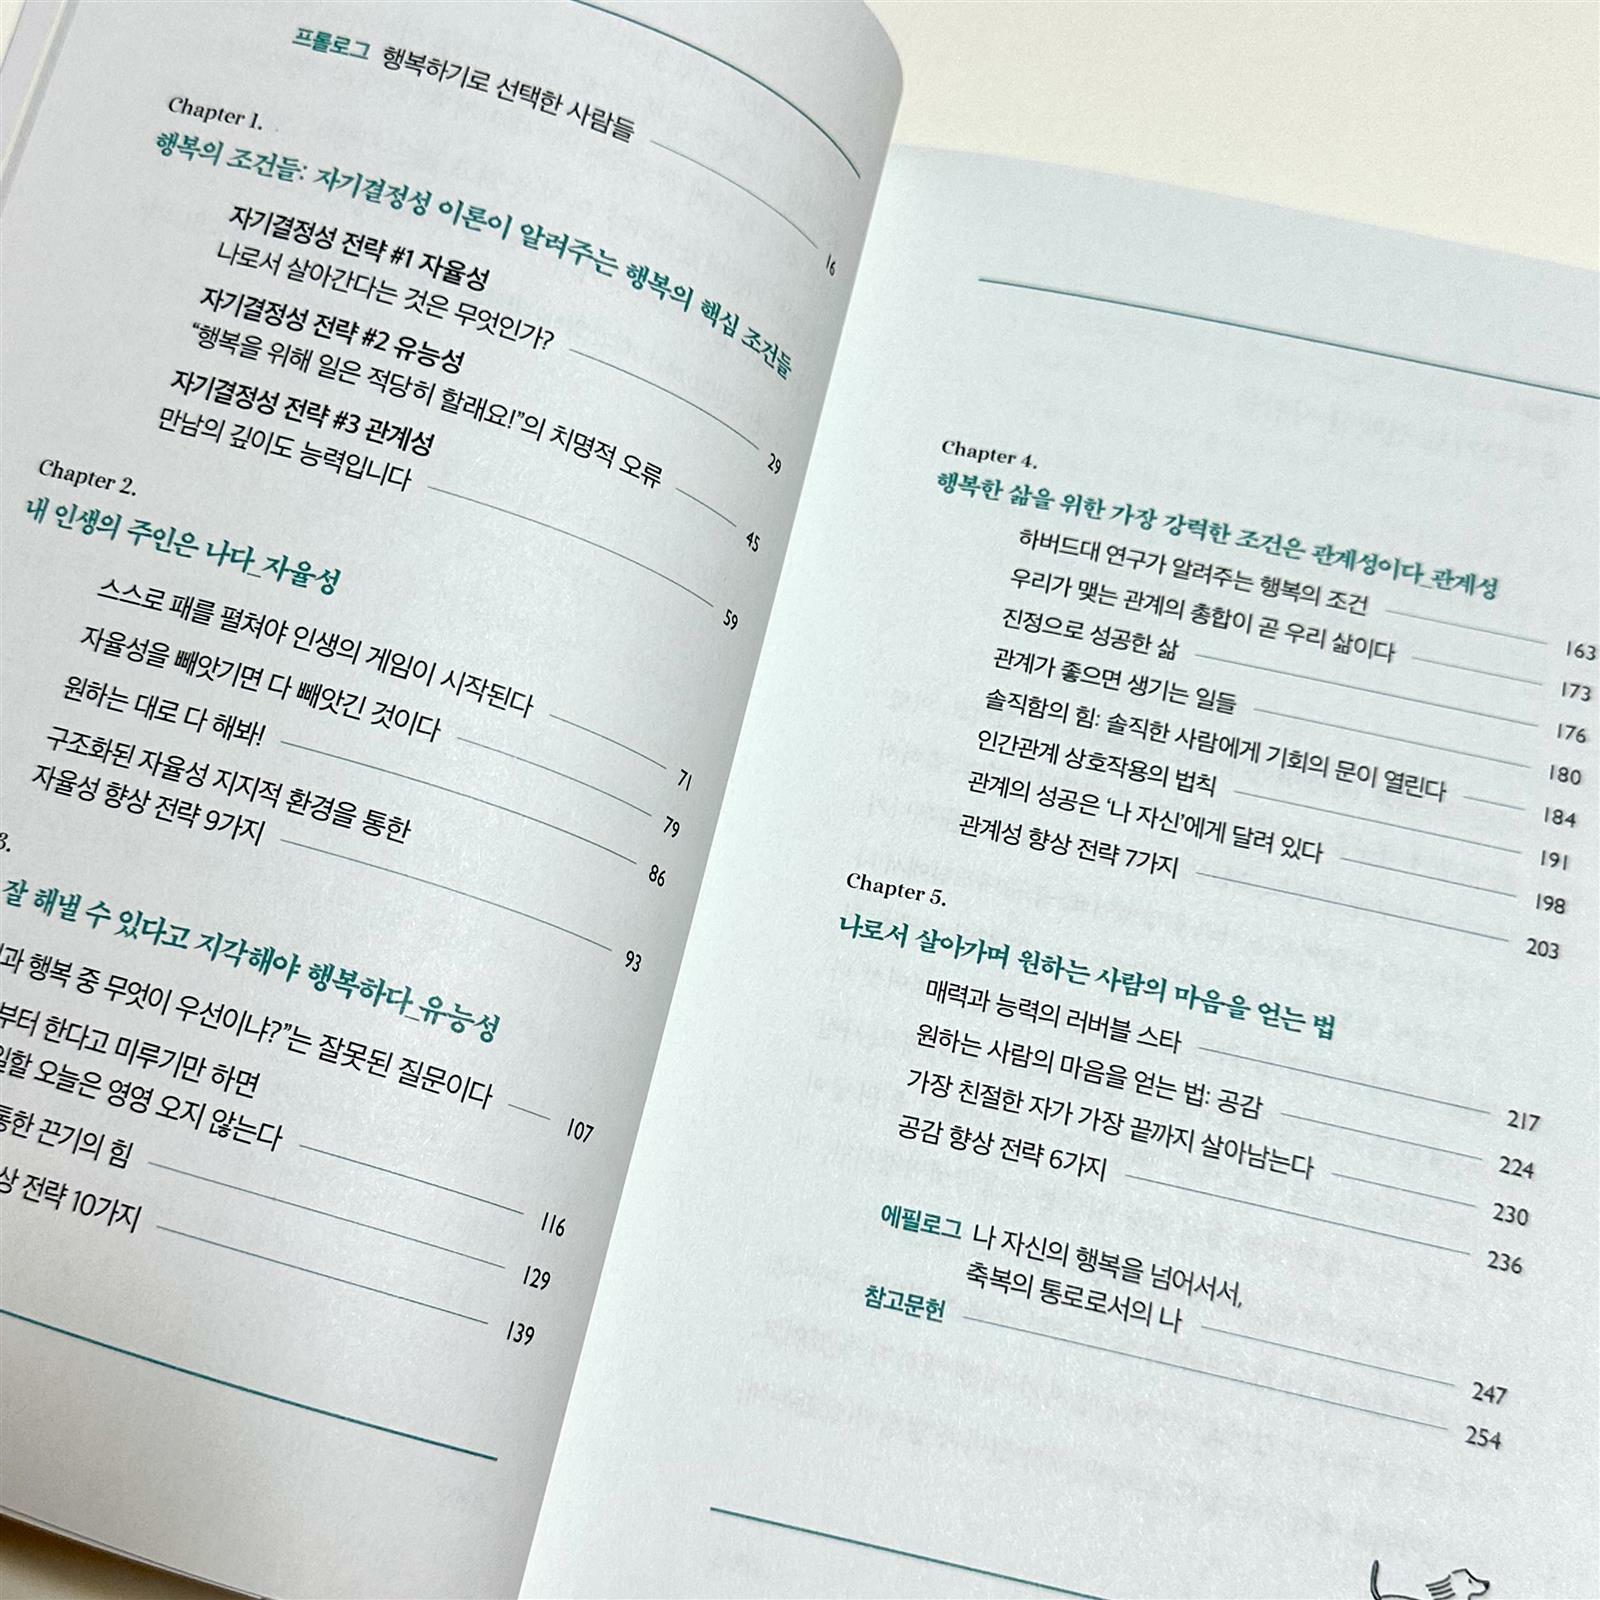 프롤로그 행복하기로 선택한 사람들 16
Chapter 1.
행복의 조건들: 자기결정성 이론이 알려주는 행복의 핵심 조건들
자기결정성 전략 #1 자율성
나로서 살아간다는 것은 무엇인가? 29
자기결정성 전략 #2 유능성
“행복을 위해 일은 적당히 할래요!”의 치명적 오류 45
자기결정성 전략 #3 관계성
만남의 깊이도 능력입니다 59
Chapter 2.
내 인생의 주인은 나다_자율성
스스로 패를 펼쳐야 인생의 게임이 시작된다 71
자율성을 빼앗기면 다 빼앗긴 것이다 79
원하는 대로 다 해봐! 86
구조화된 자율성 지지적 환경을 통한
자율성 향상 전략 9가지 93
3.
잘 해낼 수 있다고 지각해야 행복하다_유능성
행복 중 무엇이 우선이냐?”는 잘못된 질문이다 107
한다고 미루기만 하면
오늘은 영영 오지 않는다 116
끈기의 힘 129
전략 10가지 139
Chapter 4.
행복한 삶을 위한 가장 강력한 조건은 관계성이다_관계성
하버드대 연구가 알려주는 행복의 조건 163
우리가 맺는 관계의 총합이 곧 우리 삶이다 173
진정으로 성공한 삶 176
관계가 좋으면 생기는 일들 180
솔직함의 힘: 솔직한 사람에게 기회의 문이 열린다 184
인간관계 상호작용의 법칙 191
관계의 성공은 ‘나 자신’에게 달려 있다 198
관계성 향상 전략 7가지 203
Chapter 5.
나로서 살아가며 원하는 사람의 마음을 얻는 법
매력과 능력의 러버블 스타 217
원하는 사람의 마음을 얻는 법: 공감 224
가장 친절한 자가 가장 끝까지 살아남는다 230
공감 향상 전략 6가지 236
에필로그 나 자신의 행복을 넘어서서,
축복의 통로로서의 나 247
참고문헌 254